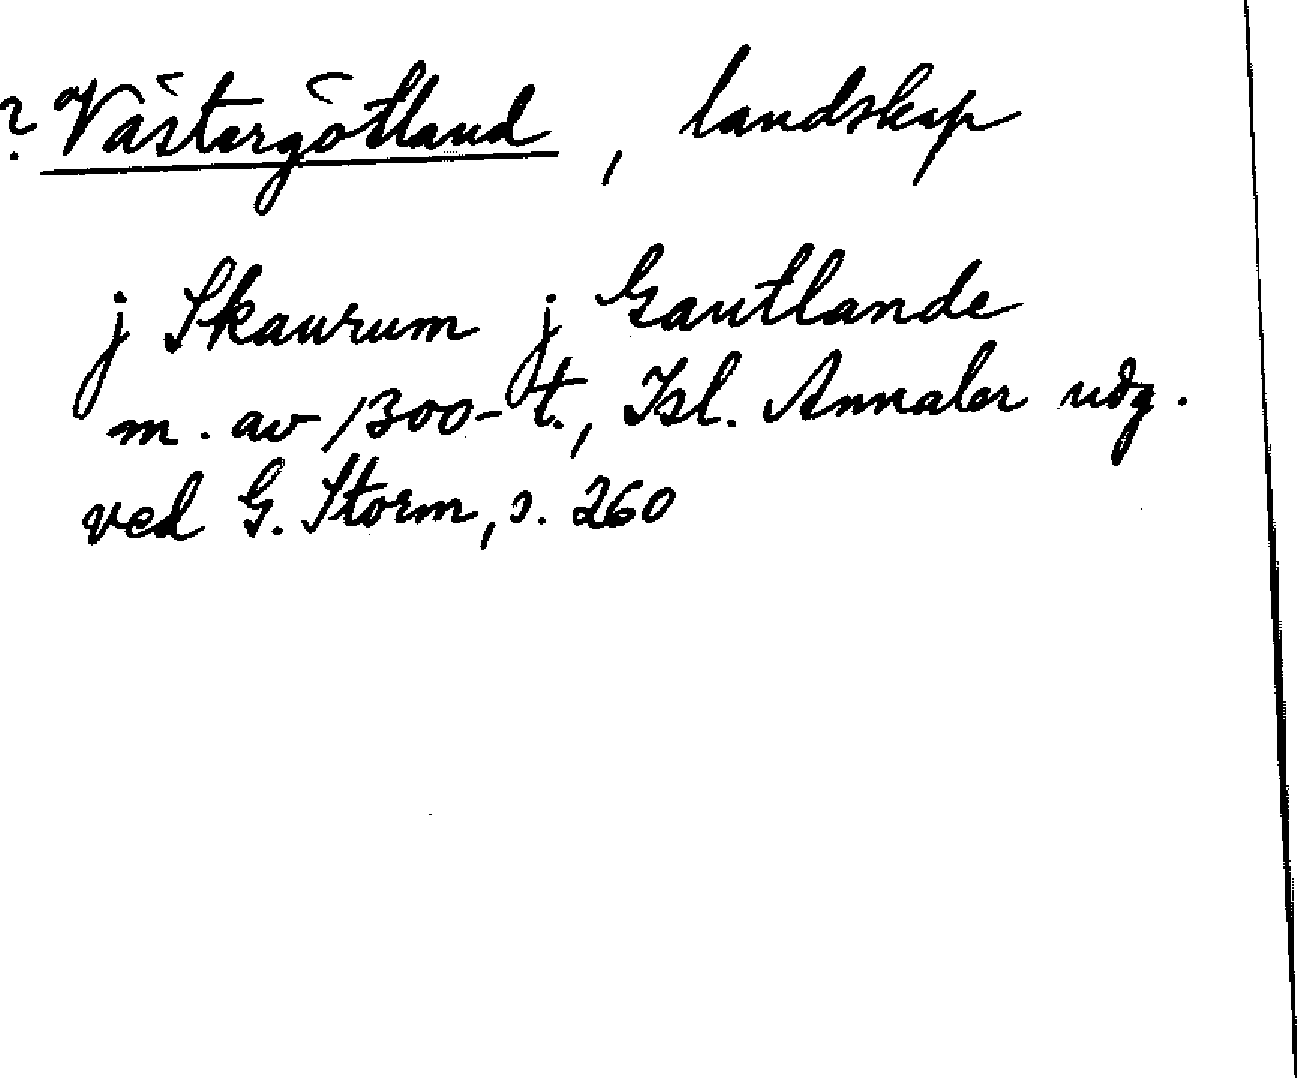 ? Västergötland, landskap
j Skaurum j Gautlande
m. av 1300-t., Isl. Annaler udg.
ved G. Storm, s. 260